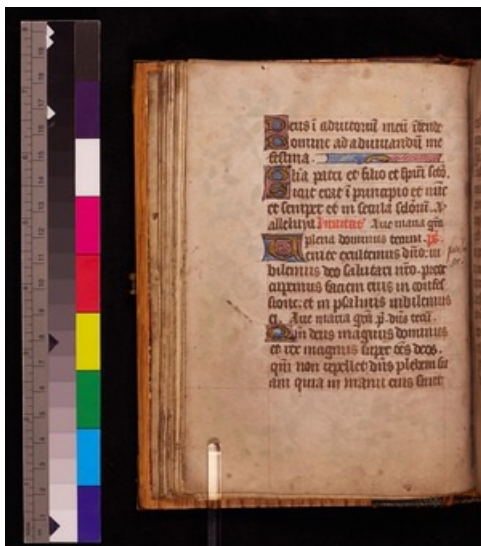 Deus ī adiutoriū meū ītende
Domine ad adiuuandū me
festina.
Glīa patri et filio et spiri scō.
Sicut erat ī principio et nūc
et semper et in secula sclorū. A
alleluya Inuitat Aue maria grā
plena dominus tecum. ps.
Uenite exultemus dño. iu
bilemus deo salutari nrō. preoc
cupemus faciem eius in confes
sione. et in psalmis iubilemus
ei. Aue maria grā p. dñs tecū.
Qm deus magnus dominus
et rex magnus super oēs deos.
qm̄ non repellet dñs plebem su
am quia in manu eius sunt